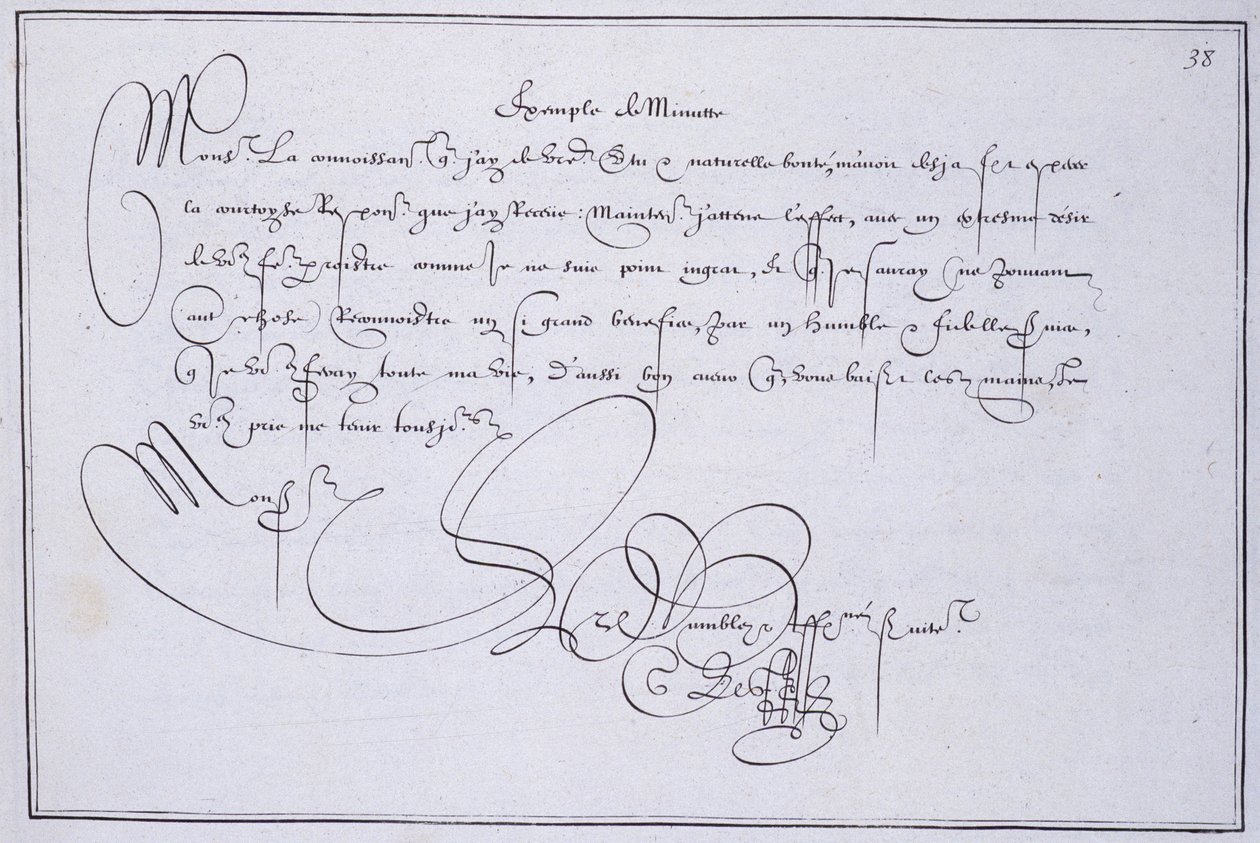 38
Exemple de Minutte
Monsr. La connoissanc. q. j'ay de vre. vtu & naturelle bonté, m'avoit desja fet espérer
la courtoyse Responc. que j'ay Receüe: Maintent. j'attens l'effect, avec un extresme désir
de vre fe. paroistre comme je ne suis point ingrat, Et q. je sauray (ne pouvant
aut chose) Reconnoistre un si grand benefice, par un humble & fidelle svice,
q je vre feray toute ma vie, D'aussi bon cueur q. vous baisant les mains, Je
vre prie me tenir tousjrs.
Monsr
Tres humble & Affné sviter.